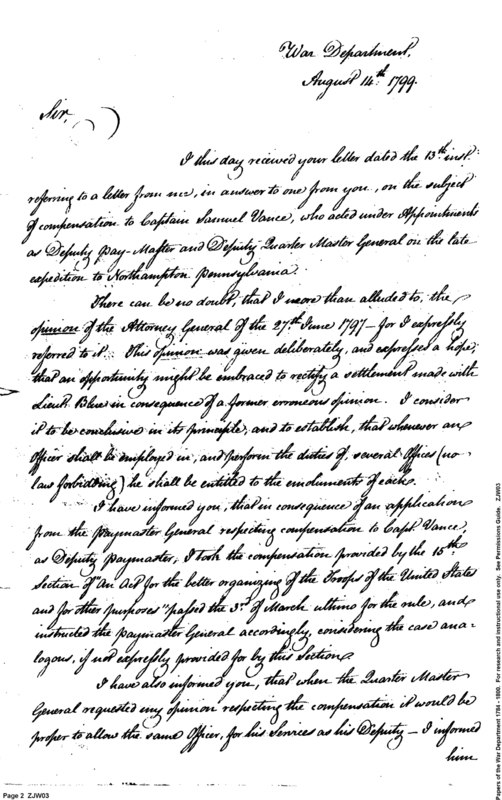 War Department,
August 14th 1799.
Sir,
I this day received your letter dated the 13th inst.
referring to a letter from me, in answer to one from you, on the subject
of compensation to Captain Samuel Vance, who acted under Appointments
as Deputy Pay-Master and Deputy Quarter Master General on the late
expedition to Northampton Pennsylvania.
There can be no doubt, that I more than alluded to, the
opinion of the Attorney General of the 27th June 1797 - for I expressly
referred to it. This opinion was given deliberately, and expresses a hope,
that an opportunity might be embraced to rectify a settlement made with
Lieut. Blue in consequence of a former erroneous opinion. I consider
it to be conclusive in its principle, and to establish, that whenever an
Officer shall be employed in, and perform the duties of, several Offices (no
law forbidding) he shall be entitled to the emoluments of each.
I have informed you, that in consequence of an application
from the Paymaster General respecting compensation to Capt. Vance,
as Deputy Paymaster, I took the compensation provided by the 15th
Section of "An Act for the better organizing of the Troops of the United States
and for other purposes" passed the 3d of March ultimo for the rule, and
instructed the Paymaster General accordingly, considering the case ana-
logous, if not expressly provided for by this Section.
I have also informed you, that when the Quarter Master
General requested my opinion respecting the compensation it would be
proper to allow the same Officer, for his Services as his Deputy - I informed
him
Page 2 ZJW03
Papers of the War Department 1784 - 1800. For research and instructional use only. See Permissions Guide. ZJW03